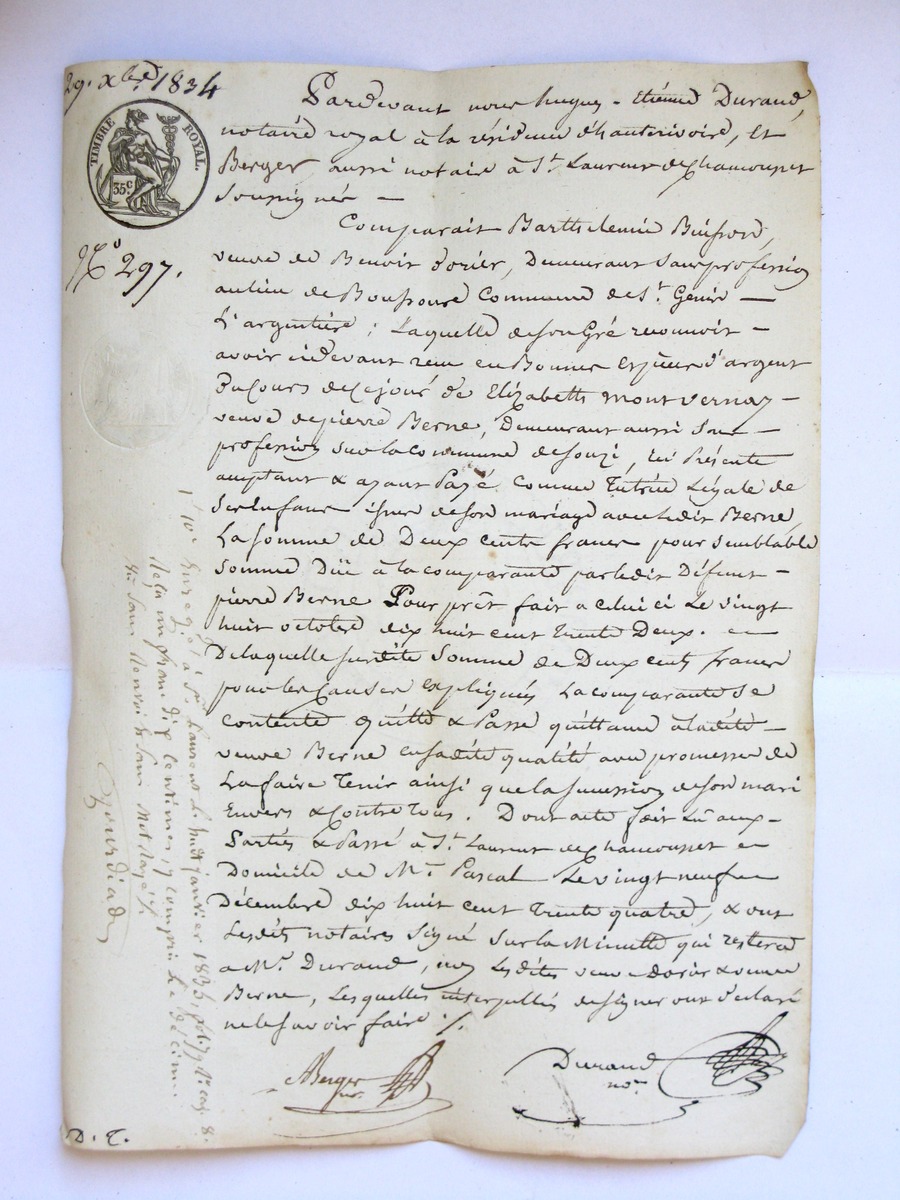 29. Xbre 1834
TIMBRE ROYAL.
35 c.
N° 297.
Pardevant nous hugues-Etienne Durand,
notaire royal à la résidence d'hauterivoire, Et
Berger, aussi notaire à St. Laurent de Chamousset
Soussignés —
Comparait Barthelemie Buisson,
veuve de Benoit Dorier, Demeurant Sans profession
au lieu de Boussoure Commune de St. Genis —
L'argentière ; Laquelle de son Gré reconnoit —
avoir cidevant reçu en Bonnes Espèces d'argent
Du Cours de Ce jour de Elizabeth montvernay —
veuve de pierre Berne, Demeurant aussi Sans —
profession sur la Commune de souzi, Ici Présente
acceptant & ayant Payé Comme Tutrice Légale de
Ses Enfans issus de son mariage avec Ledit Berne,
La Somme de Deux cents francs pour Semblable
Somme Düe à la comparante par ledit Défunt —
pierre Berne Pour prêt fait a Celui ci Le vingt
huit octobre dix huit cent trente Deux. —
De laquelle Susdite Somme de Deux cents francs
pour les Causes Expliqués La comparante Se
Contente quitte & Passe quittance à ladite —
veuve Berne En sadite qualité avec promesse de
La faire Tenir ainsi que la succession de son mari
Envers & Contre Tous. Dont acte fait Lu aux —
Parties & Passé à St. Laurent de Chamousset en
Domicile de Me. Pascal Le vingt neuf
Décembre dix huit cent Trente quatre, & ont
Lesdits notaires Signé Sur la Minutte qui restera
a Me. Durand, non Lesdites veuve Dorier & veuve
Berne, Lesquelles interpellés de signer ont déclaré
ne le savoir faire ./.
Berger
no.re
Durand
no.re
D. T.
Enregistré à St. Laurent Le huit janvier 1835, fol. 77 Ro. Cas. 8.
Reçu un franc dix Centimes, y Compris Le Décime
un Sans Renvoi & Sans Mot Rayé ./.